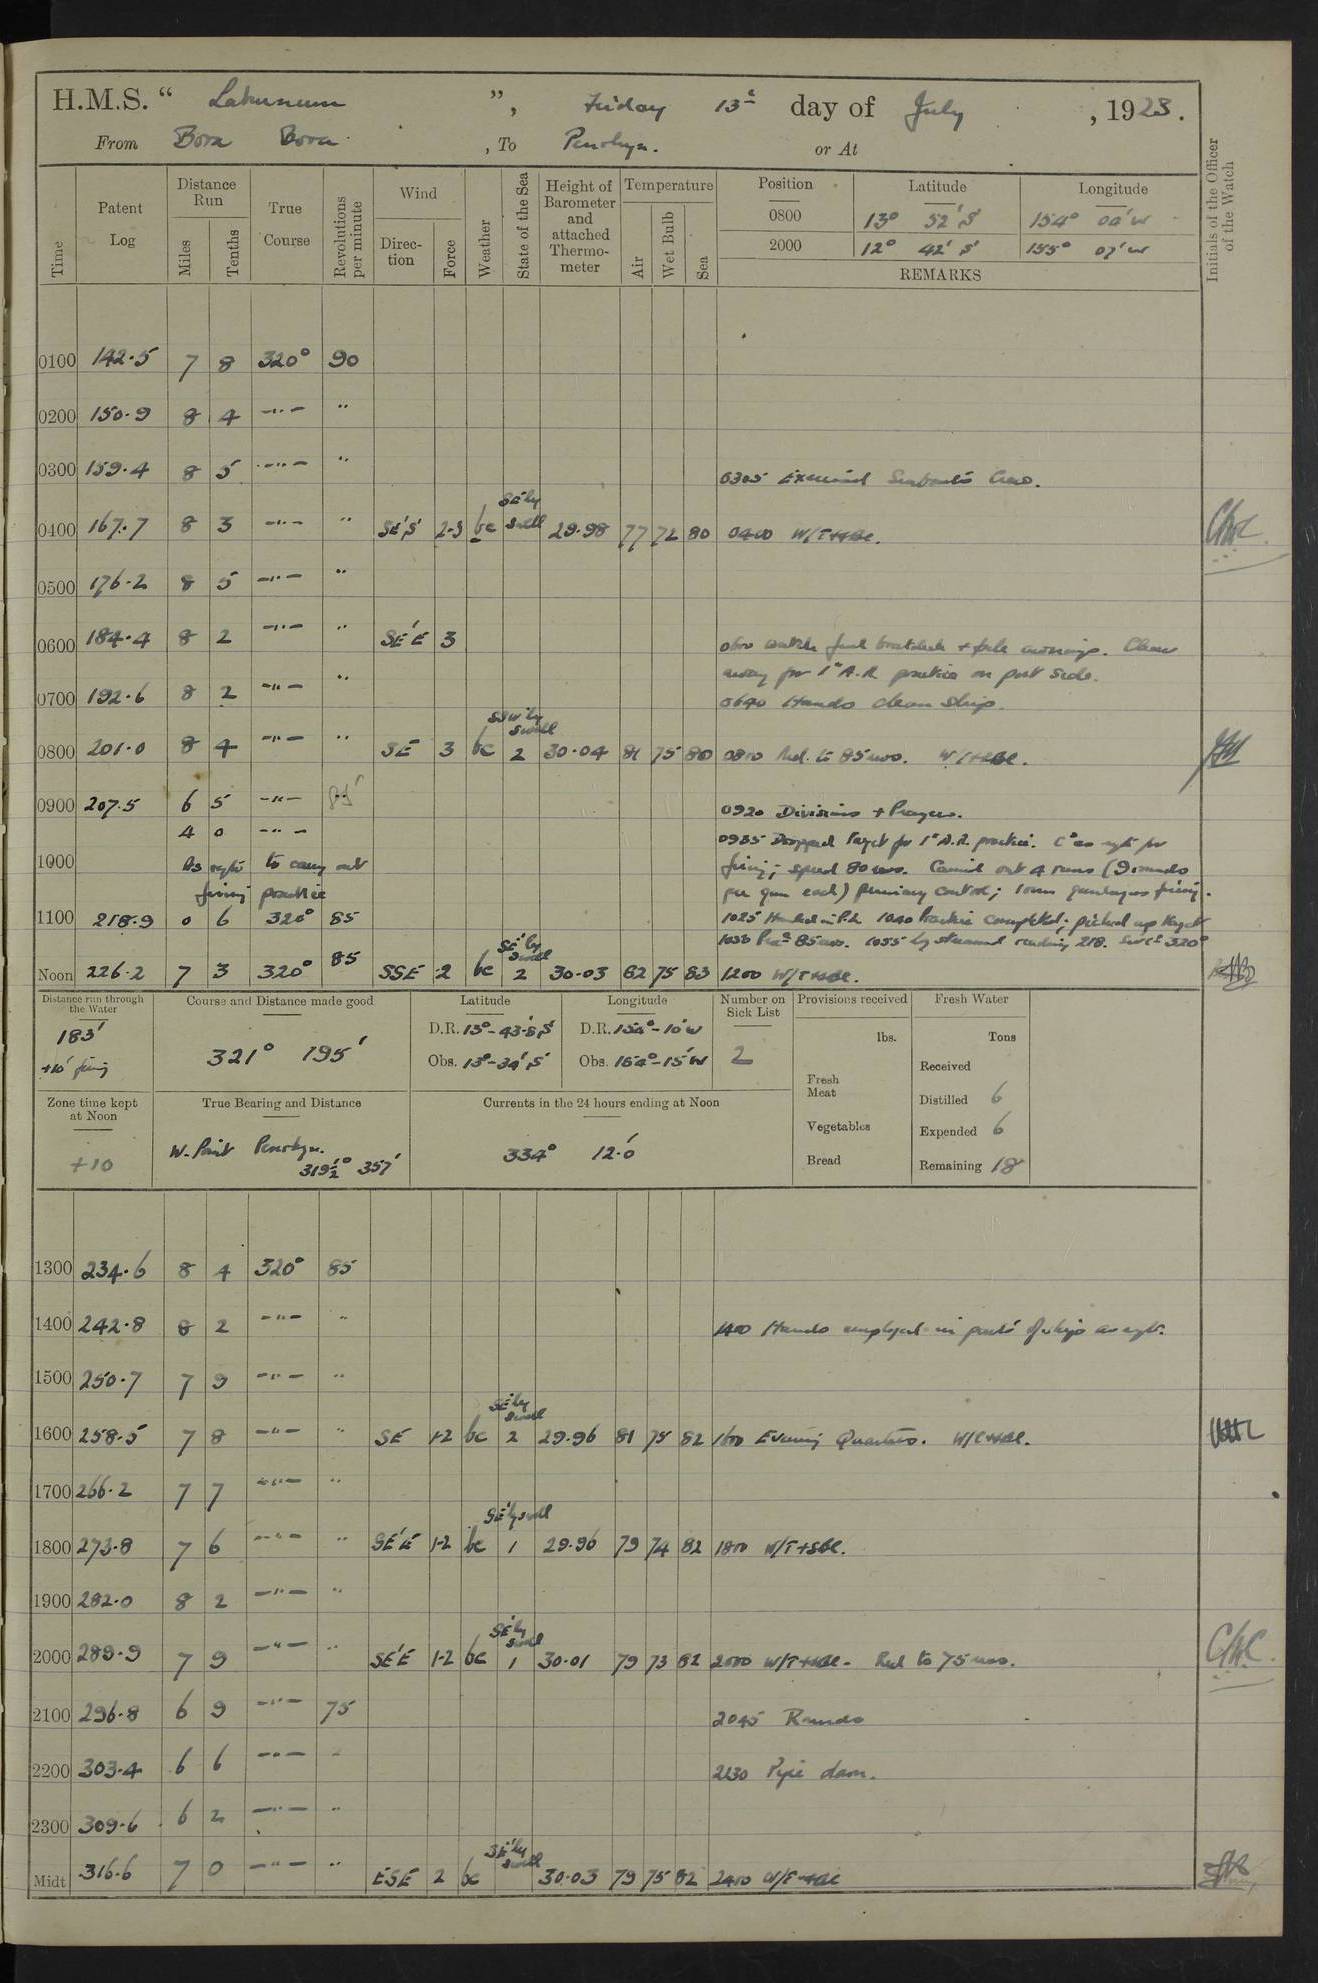 H.M.S. " Laburnum ", Friday 13th day of July, 1923.
From Bora Bora, To Penrhyn. or At
Initials of the Officer of the Watch
Time
Patent Log
Distance Run
Miles
Tenths
True Course
Revolutions per minute
Wind
Direction
Force
Weather
State of the Sea
Height of Barometer and attached Thermometer
Temperature
Air
Wet Bub
Sea
Position Latitude Longitude
0800 13° 52' S 154° 04' W
2000 12° 42' S 155° 07' W
REMARKS
0100 142.5 7 8 320° 90
0200 150.9 8 4 —"— "
0300 159.4 8 5 —"— "
0305 Exercised Seaboat's Crew.
SE'ly swell
0400 167.7 8 3 —"— " SE'S 2-3 bc 29.98 77 72 80 0400 W/T+SBL.
0500 176.2 8 5 —"— "
0600 184.4 8 2 —"— " SE'E 3
0600 Clear
away for 1" A.R. practice on port side.
0700 192.6 8 2 —"— "
0640 Hands clean ship.
swell
0800 201.0 8 4 —"— " SE 3 bc 2 30.04 81 75 80 0800 Red. to 85 revs. W/T+SBL.
0900 207.5 6 5 —"— 85
0920 Divisions + Prayers.
4 0 —"—
0935 Dropped target for 1" A.R. practice. Co as reqte for
1000 As reqte to carry out
firing; speed 80 revs. Carried out 4 runs (9 rounds
firing practice
per gun each) primary control; 1 run gunlayers firing.
1100 218.9 0 6 320° 85
1025 1040 Practice completed; picked up target
1050 85 revs. 1055 log streamed reading 218. 320°
SE'ly swell
Noon 226.2 7 3 320° 85 SSE 2 bc 2 30.03 82 75 83 1200 W/T+SBL.
Distance run through the Water
183'
+10' firing
Course and Distance made good
321° 195'
Latitude
D.R. 13°-43.5'S
Obs. 13°-34'S
Longitude
D.R. 154°-10'W
Obs. 154°-15'W
Number on Sick List
2
Provisions received
lbs.
Fresh Meat
Vegetables
Bread
Fresh Water
Tons
Received
Distilled 6
Expended 6
Remaining 18
Zone time kept at Noon
+10
True Bearing and Distance
W. Point Penrhyn.
319½° 357'
Currents in the 24 hours ending at Noon
334° 12.0'
1300 234.6 8 4 320° 85
1400 242.8 8 2 —"— " 1400 Hands employed in parts of ship as reqte.
1500 250.7 7 9 —"— "
SE'ly swell
1600 258.5 7 8 —"— " SE 1-2 bc 2 29.96 81 75 82 1600 Evening Quarters. W/T+SBL.
1700 266.2 7 7 —"— "
SE'ly swell
1800 273.8 7 6 —"— " SE'E 1-2 bc 1 29.96 79 74 82 1800 W/T+SBL.
1900 282.0 8 2 —"— "
SE'ly swell
2000 289.9 7 9 —"— " SE'E 1-2 bc 1 30.01 79 73 82 2000 W/T+SBL. Red to 75 revs.
2100 296.8 6 9 —"— 75 2045 Rounds
2200 303.4 6 6 —"— " 2130 Pipe down.
2300 309.6 6 2 —"— "
SE'ly swell
Midt 316.6 7 0 —"— " ESE 2 bc 30.03 79 75 82 2400 W/T+SBL